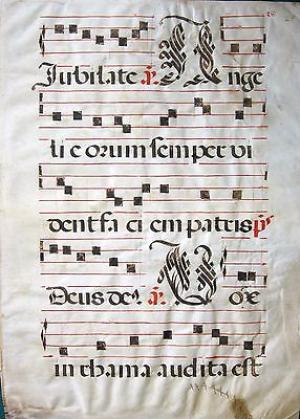 Jubilate a. Ange
li e orum sem per vi
dent fa ci em patris ps
Deus de a. Vox
in rhama audita est